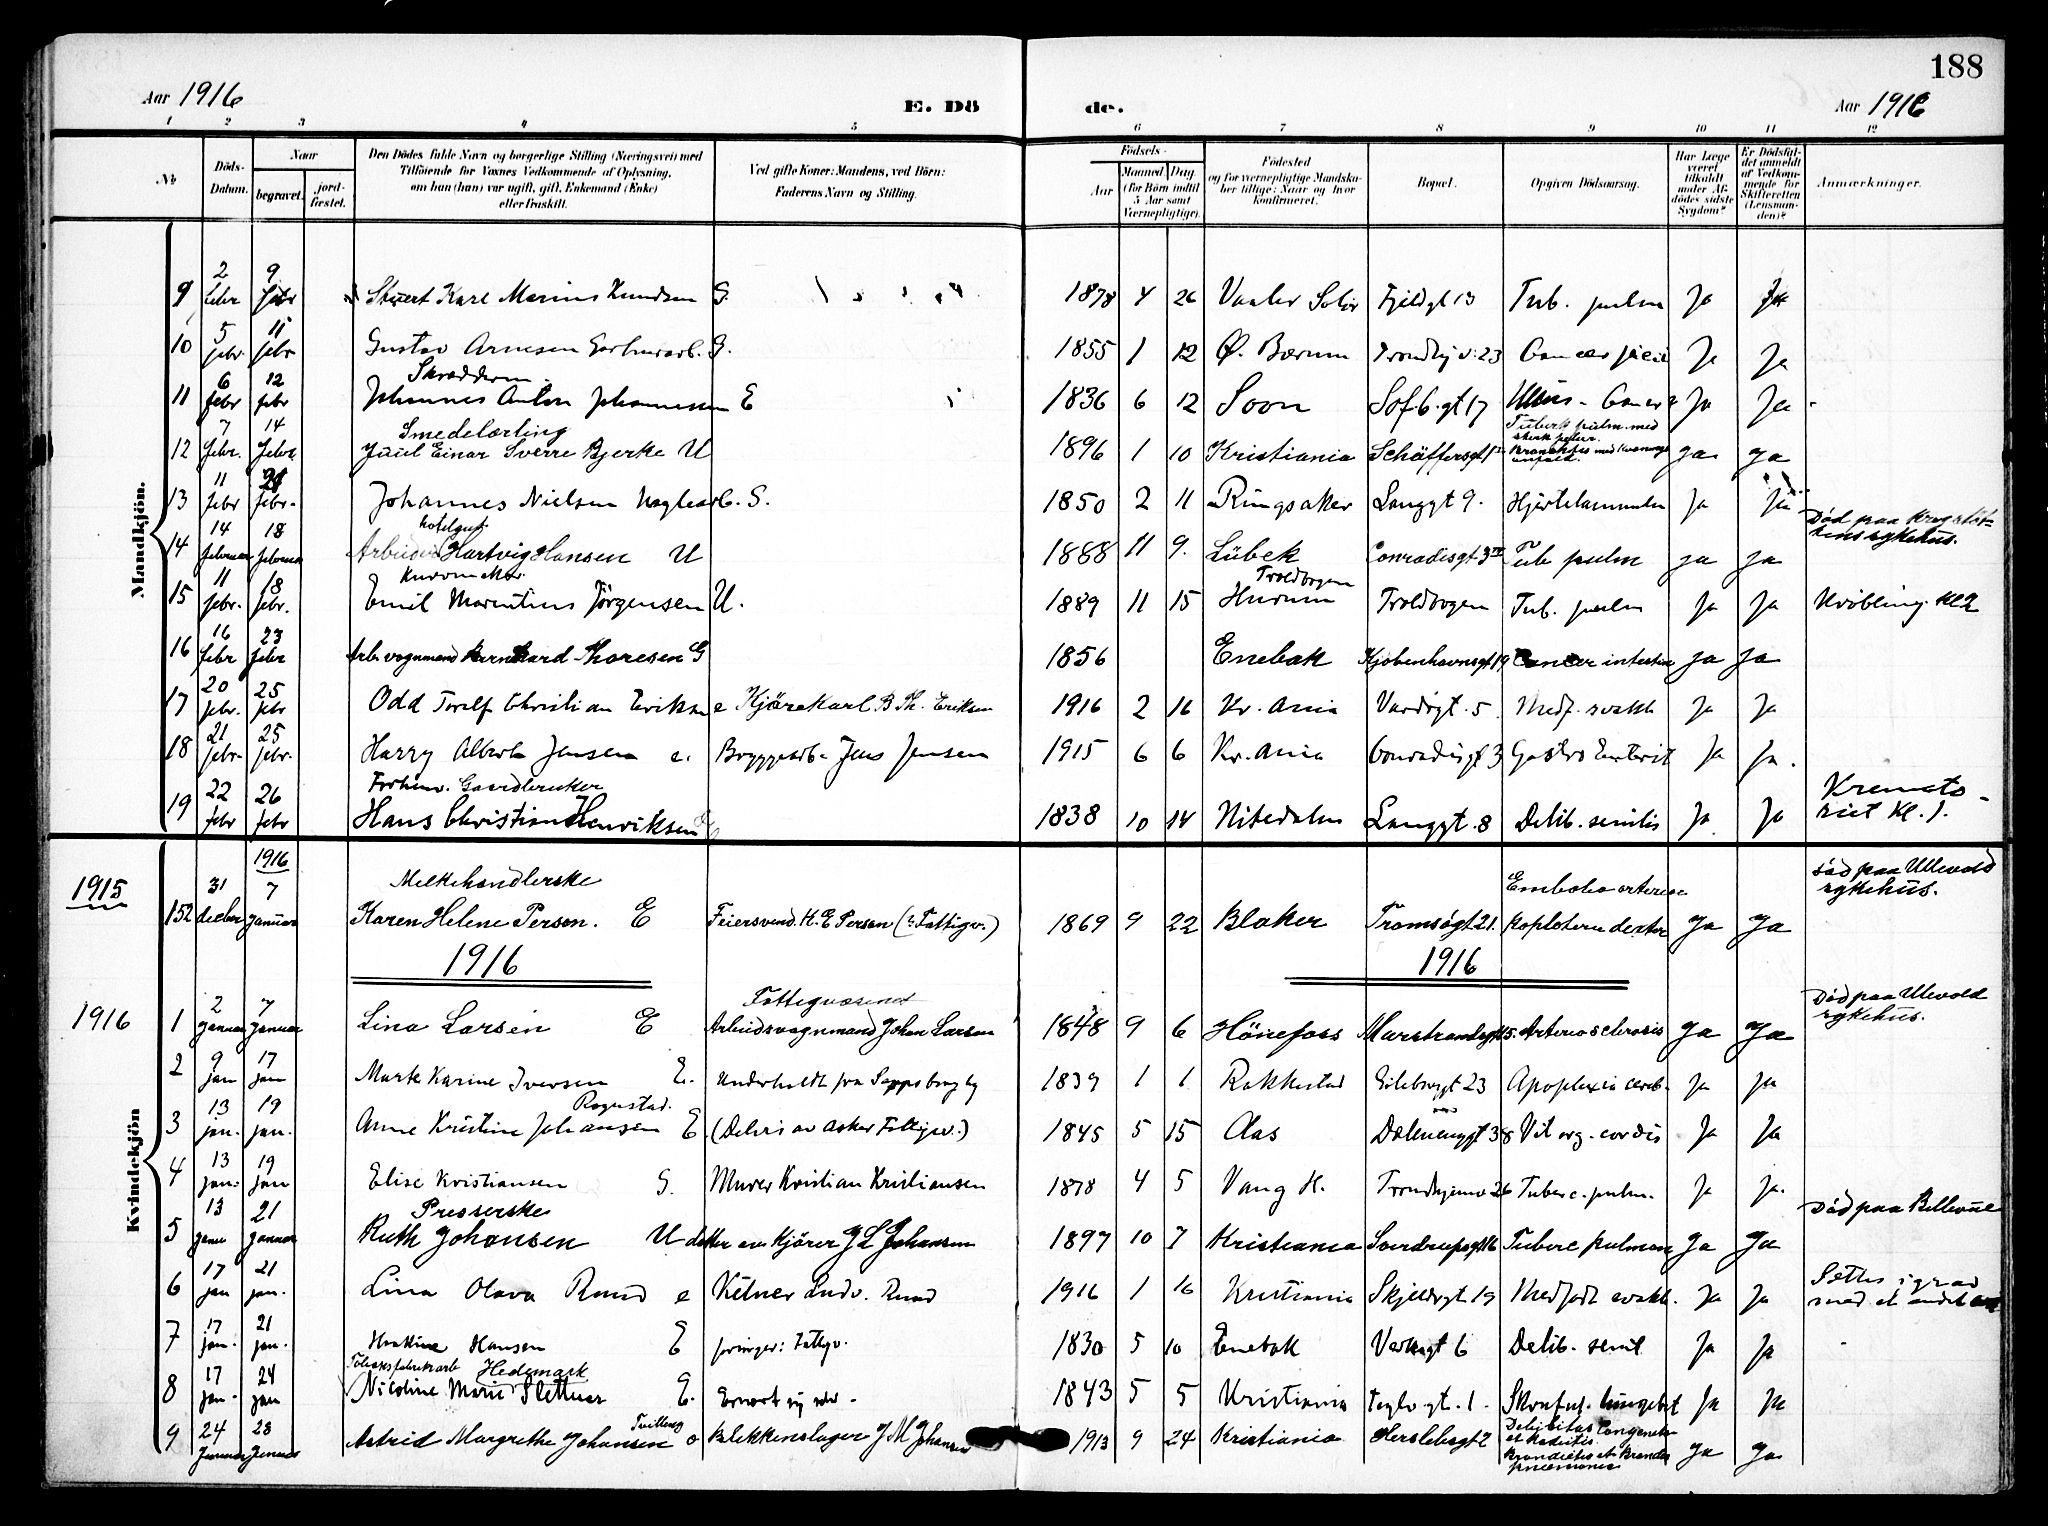 188
Aar 1916
E. Dö
de.
Aar 1916
1 2 3 4 5 6 7 8 9 10 11 12
No
Döds-Datum.
Naar
begravet.
jord-fæstet.
Den Dödes fulde Navn og borgerlige Stilling (Næringsvei) med
Tilföiende for Voxnes Vedkommende af Oplysning,
om hun (han) var ugift, gift, Enkemand (Enke)
eller fraskilt.
Ved gifte Koner: Mandens, ved Börn:
Faderens Navn og Stilling.
Födsels-
Aar
Maaned Dag
(for Börn indtil
5 Aar samt
Værnepligtige).
Födested
og for værnepligtige Mandska-
ber tillige: Naar og hvor
konfirmeret.
Bopæl.
Opgiven Dödsaarsag.
Har Læge
været
tilkaldt
under Af-
dödes sidste
Sygdom?
Er Dödsfal-
det anmeldt
af Vedkom-
mende for
Skifteretten
(Lensman-
den)?
Anmærkninger.
Mandkjön.
9 2 febr 9 febr Karl Marius Knudsen G. 1878 4 26 Vaaler Solör Fjeldgt 13 Tub. pulm Ja Ja
10 5 febr. 11 febr Gustav Arnesen G. 1855 1 12 Ø. Bærum Trondhj.v. 23 Cancer Ja Ja
Skrædderm.
11 6 febr 12 febr Johannes Anton Johannessen E 1836 6 12 Soon Sof.b.gt 17 Cancer Ja Ja
Smedelærling
12 7 febr. 14 febr Juul Einar Sverre Bjerke U 1896 1 10 Kristiania Schäffersgt Tuberk pulm. med Ja Ja
13 11 febr 21 febr. Johannes Nielsen G. 1850 2 11 Ringsaker Langgt 9. Hjertelammelse Ja Ja
14 14 februar 18 februar Arbeider Hartvig Hansen U 1888 11 9. Lübek Conradisgt 3 Tub pulm Ja Ja Död paa Krogstöt-
tens sykehus.
15 11 febr. 18 febr. Emil Martinius Jörgensen U. 1889 11 15 Hurum Troldbogen Tub. pulm Ja Ja
16 16 febr 23 febr Arb. vognmand Bernhard Thoresen G 1856 Enebak Kjøbenhavnsgt 19 Cancer Ja Ja
17 20 febr. 25 febr Odd Torolf Christian Eriksen e Kjörekarl B. Th. Eriksen 1916 2 16 Kr. ania Vardögt. 5 Medf. svakh Ja Ja
18 21 febr. 25 febr. Harry Albert Jensen e. Bryggearb. Jens Jensen 1915 6 6 Kr. ania Conradisgt 3 Gastro Enterit Ja Ja
Forhenv. Gaardbruker
19 22 febr 26 febr Hans Christian Henriksen 1838 10 14 Nitedalen Langgt. 8 Debil. senilis Ja Ja Kremato-
riet Kl. 1.
1915
1916
Melkehandlerske
152 31 decbr 7 januar Karen Helene Person. E Feiersvend K. E Person (: Fattigv.) 1869 9 22 Blaker Tromsögt 21. Ja Ja död paa Ullevold
sykehus.
1916
1916
Kvindekjön
1916
Fattigvæsenet
1 2 januar 7 januar Lina Larsen E Arbeidsvognmand Johan Larsen 1848 9 6 Hönefoss Marstrandsgt 15. Arteriosclerosis Ja Ja Död paa Ullevold
sykehus.
2 9 jan 17 jan Marte Karine Iversen E. 1839 1 1 Rakkestad Eilebregt 23 Apoplexia cereb. Ja Ja
3 13 jan. 19 jan. Anne Kristine Johansen E. (Delvis av Asker Fattigv.) 1845 5 15 Aas Dælenenggt 38 Vit org. cordis Ja Ja
4 13 jan. 19 jan Elise Kristiansen G. Murer Kristian Kristiansen 1878 4 5 Vang H. Trondhjemsv 26 Tuberc. pulm. Ja Ja
Presserske
5 13 januar 21 januar Ruth Johansen U datter av Kjörer J L Johansen 1897 10 7 Kristiania Sverdrupsgt 16 Tuberc pulmon Ja Ja Död paa Bellevue
6 17 jan 21 jan. Lina Olava Ruud e Kelner Ludv. Ruud 1916 1 16 Kristiania Skjeldrgt 19 Medfödt svakh. Ja Ja Sættes i grav
med et andet
7 17 jan. 21 jan. Hansen E 1830 5 10 Enebak Verksgt 6 Debil. senil Ja Ja
Tobaksfabrikarb Hedemark
8 17 jan. 24 jan Nicoline Marie Slettner E. 1843 5 5 Kristiania Teglv.gt. 1. Ja Ja
9 24 Januar 28 Januar Astrid Margrethe Johansen Tvilling Blekkenslager J M Johansen 1913 9 24 Kristiania Herslebsgt 2 Debilitas Congenita Ja Ja